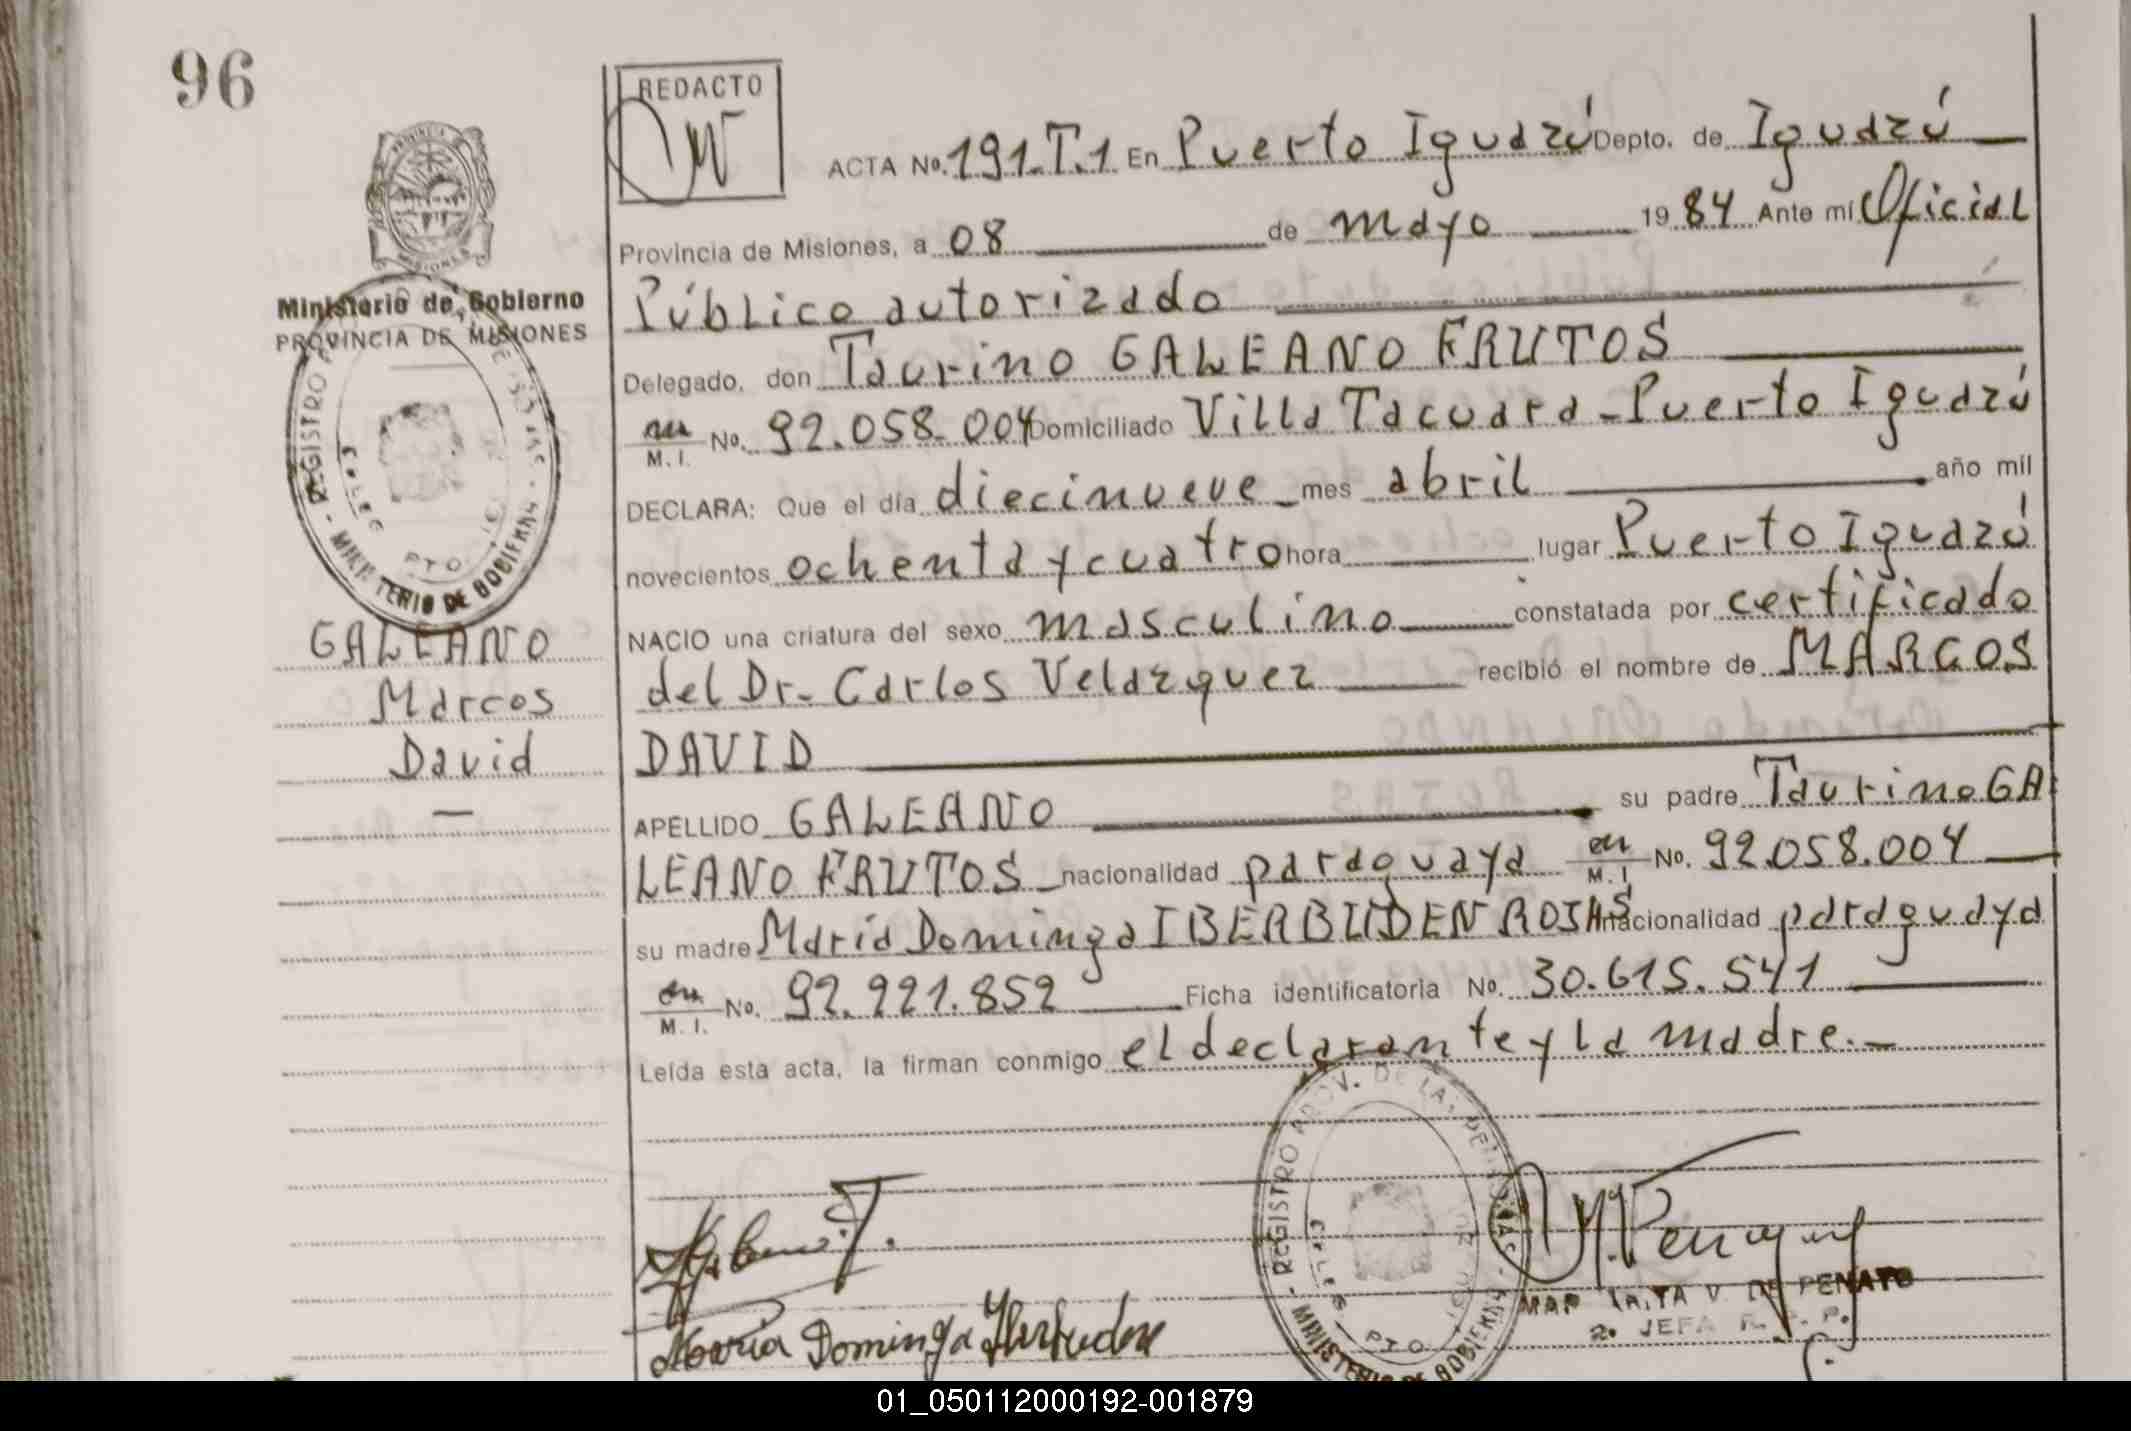 96
REDACTO
ACTA No. 191.T.1 En Puerto Iguazú Depto. de Iguazú
Provincia de Misiones, a 08 de mayo 19 84 Ante mí Oficial
Público autorizado
Delegado, don Taurino GALEANO FRUTOS
M.I. No. 92.058.004 Domiciliado Villa Tacuara - Puerto Iguazú
DECLARA: Que el día diecinueve mes abril año mil
novecientos ochenta y cuatro hora lugar Puerto Iguazú
NACIO una criatura del sexo masculino constatada por certificado
del Dr. Carlos Velazquez recibió el nombre de MARCOS
DAVID
APELLIDO GALEANO su padre Taurino GA
LEANO FRUTOS nacionalidad paraguaya M.I No. 92.058.004
su madre Maria Dominga IBERBUDEN ROJAS nacionalidad paraguaya
M.I. No. 92.221.852 Ficha identificatoria No. 30.615.541
Leída esta acta, la firman conmigo el declarante y la madre.-
Ministerio de Gobierno
PROVINCIA DE MISIONES
MISIONES
REGISTRO
PTO.
GALEANO
Marcos
David
—
REGISTRO PROV. DE LAS PERSONAS - MINISTERIO DE GOBIERNO
PTO.
Maria Dominga
V DE PENATO
2º JEFA R. P. P.
01_050112000192-001879